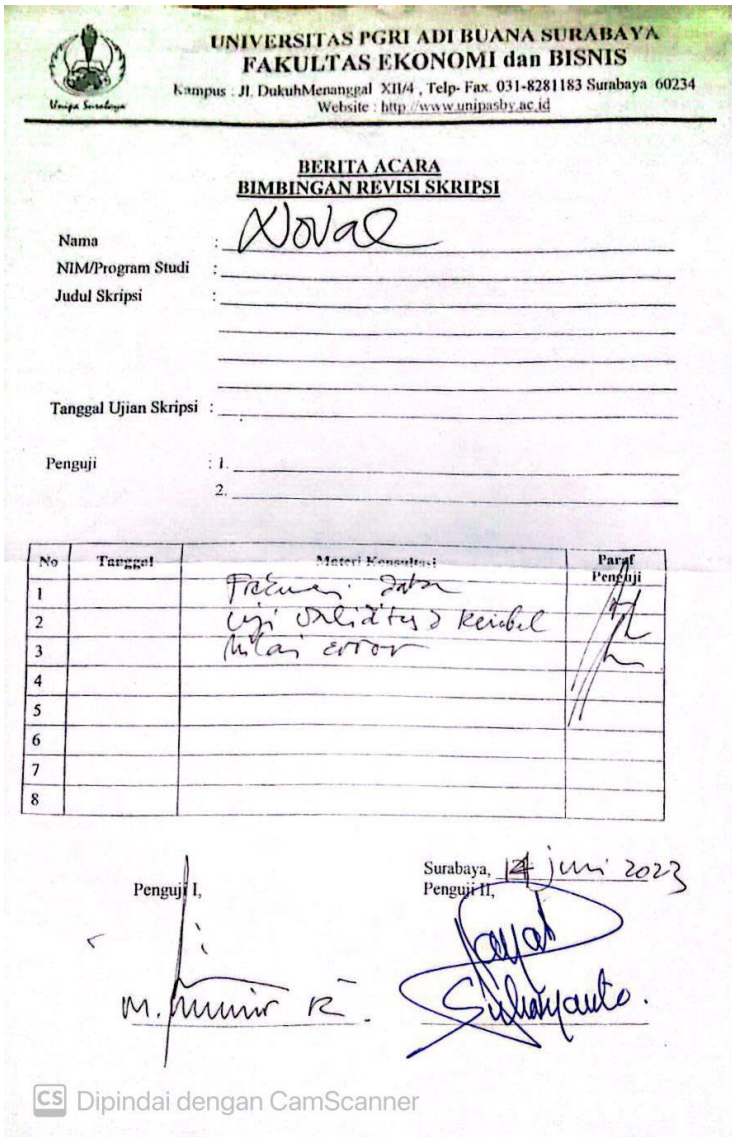 UNIVERSITAS PGRI ADI BUANA SURABAYA
FAKULTAS EKONOMI dan BISNIS
Kampus : Jl. DukuhMenanggal XII/4 , Telp- Fax. 031-8281183 Surabaya 60234
Website : http://www.unipasby.ac.id
Unipa Surabaya
BERITA ACARA
BIMBINGAN REVISI SKRIPSI
Nama : Noval
NIM/Program Studi :
Judul Skripsi :
Tanggal Ujian Skripsi :
Penguji : 1.
2.
No Tanggal Materi Konsultasi Paraf Penguji
1 data
2 Uji Validitas & Reliabel
3 Nilai error
4
5
6
7
8
Surabaya, 14 juni 2023
Penguji I, Penguji II,
M. Munir R. Suharyanto.
CS Dipindai dengan CamScanner